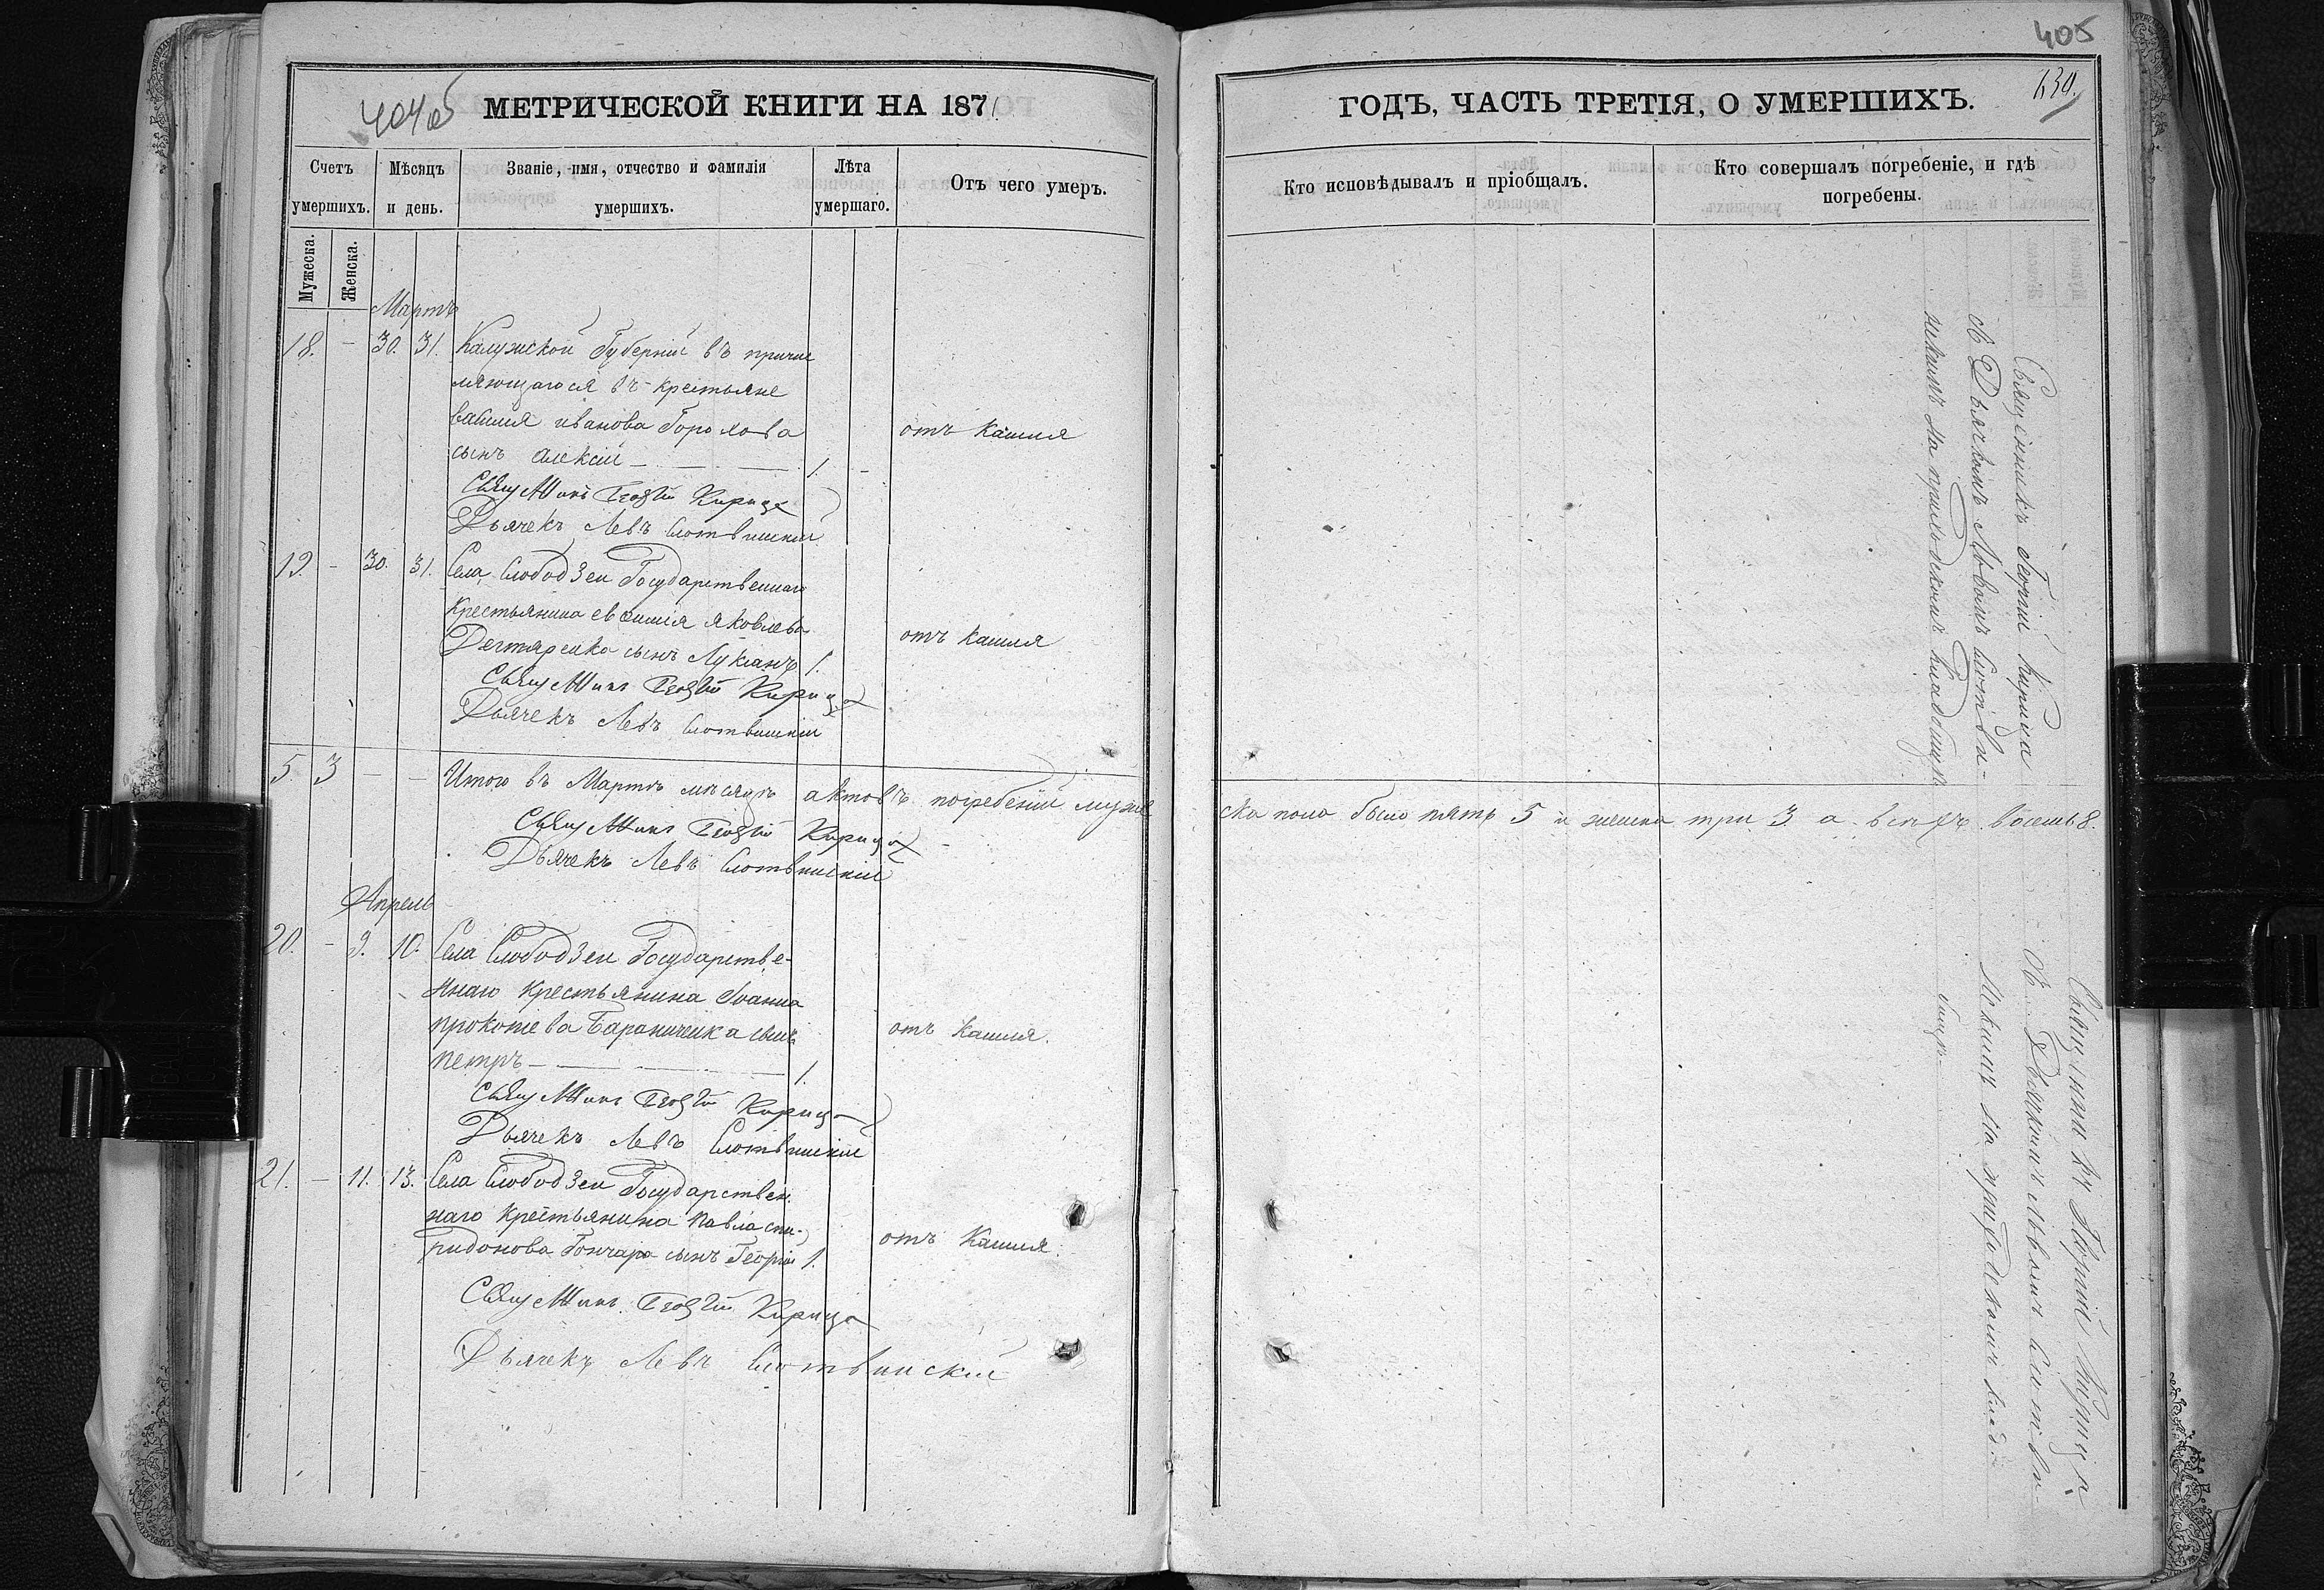 404об
МЕТРИЧЕСКОЙ КНИГИ НА 1871
Счетъ умершихъ.
Мѣсяцъ и день.
Званіе, имя, отчество и фамилія умершихъ.
Лѣта умершаго.
Отъ чего умеръ.
Мужеска.
Женска.
Мартъ
18. - 30. 31. Калужской Губерніи въ причис
ляющагося въ крестьяне
василія иванова Горохова отъ кашля
сынъ алексій - 1. -
Священникъ Георгій Кирица
Дьячекъ Левъ Слотвинскій
19. - 30. 31. Села Слободзеи Государственнаго
крестьянина евфимія яковлева
Дегтяренка сынъ Лукіанъ 1. отъ кашля
Священникъ Георгій Кирица
Дьячекъ Левъ Слотвинскій
5 3 - - Итого въ Мартѣ мѣсяцѣ актовъ погребеній муже
Священникъ Георгій Кирица
Дьячекъ Левъ Слотвинскій
Апрель
20. - 9. 10. Села Слободзеи Государстве-
ннаго крестьянина Іоанна
прокопіева Бараниченка сынъ отъ кашля.
петръ - 1.
Священникъ Георгій Кирица
Дьячекъ Левъ Слотвинскій
21. - 11. 13. Села Слободзеи Государствен.
наго крестьянина павла спи-
ридонова Гончара сынъ Георгій 1. отъ кашля.
Священникъ Георгій Кирица
Дьячекъ Левъ Слотвинскій
405
430.
ГОДЪ, ЧАСТЬ ТРЕТІЯ, О УМЕРШИХЪ.
Кто исповѣдывалъ и пріобщалъ.
Кто совершалъ погребеніе, и гдѣ
погребены.
Священникъ Георгій Кирица
съ Дьячкомъ Львомъ Слотви-
нскимъ на приходскомъ кладбищѣ
ска пола было пять 5 и женска три 3. а всѣхъ восемь 8.
Священникъ Георгій Кирица
съ Дьячкомъ Львомъ Слотви-
нскимъ на приходскомъ клад-
бищѣ